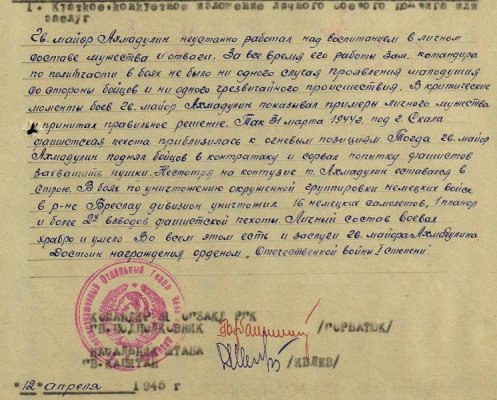 I. Краткое, конкретное изложение личного боевого подвига или
заслуг
Гв. майор Ахмадулин неустанно работал над воспитанием в личном
составе мужества и отваги. За все время его работы зам. командира
по политчасти в боях не было ни одного случая проявления малодушия
со стороны бойцов и ни одного чрезвычайного происшествия. В критические
моменты боев гв. майор Ахмадулин показывал примеры личного мужества
и принимал правильное решение. Так 31 марта 1944г. под г. Скала
фашистская пехота приблизилась к огневым позициям Тогда гв. майор
Ахмадулин поднял бойцов в контратаку и сорвал попытку фашистов
захватить пушки. Несмотря на контузию т. Ахмадулин оставался в
строю. В боях по уничтожению окруженной группировки немецких войск
в р-не Бреслау дивизион уничтожил 16 немецких самолетов, 1 планер
и более 2х взводов фашистской пехоты. Личный состав воевал
храбро и умело. Во всем этом есть и заслуги гв. майора Ахмадулина
Достоин награждения орденом „Отечественной войны I степени"
КОМАНДИР
ГВ. ПОДПОЛКОВНИК /ГОРБАТЮК/
НАЧАЛЬНИК ШТАБА
ГВ. КАПИТАН /ИВЛЕВ/
"12" апреля 1945 г